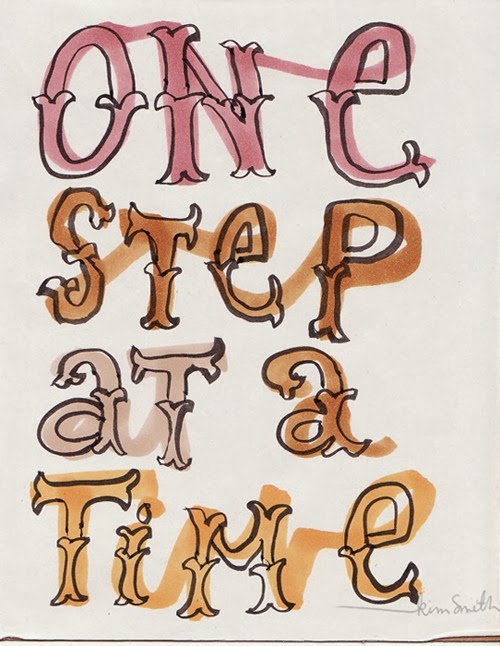 ONe
STeP
aT a
TiMe
Kim Smith